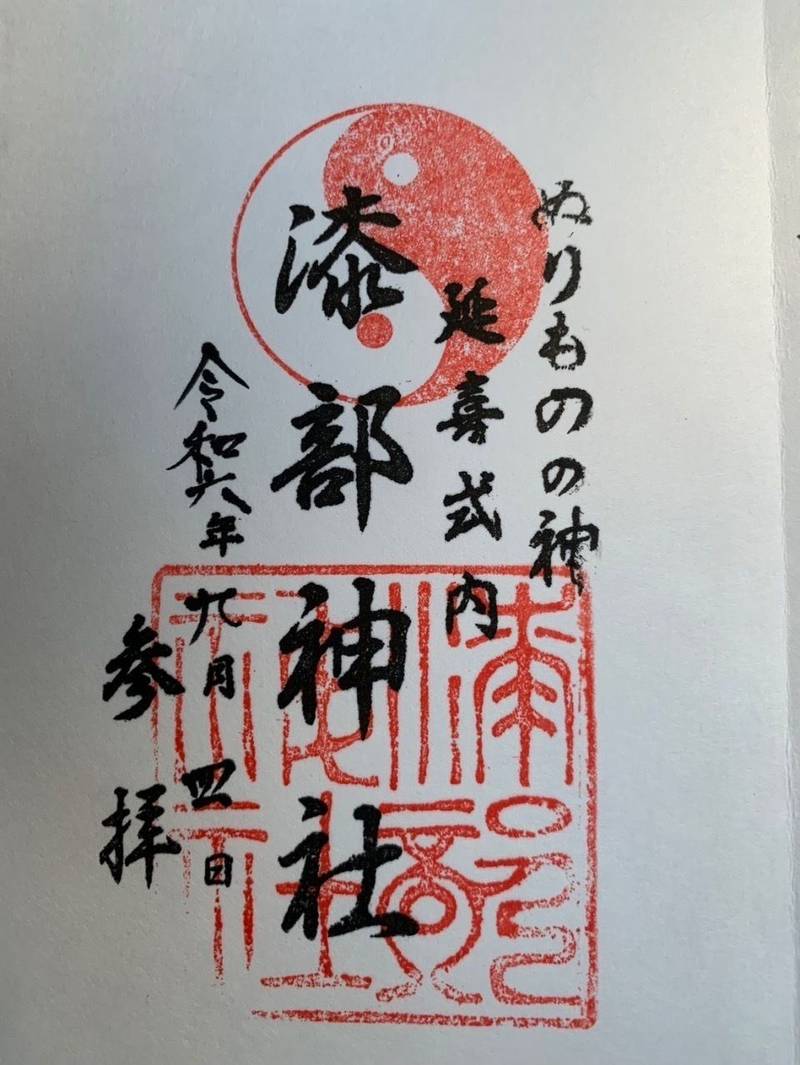 ぬりものの神
延喜式内
漆部神社
令和六年九月四日
参拝